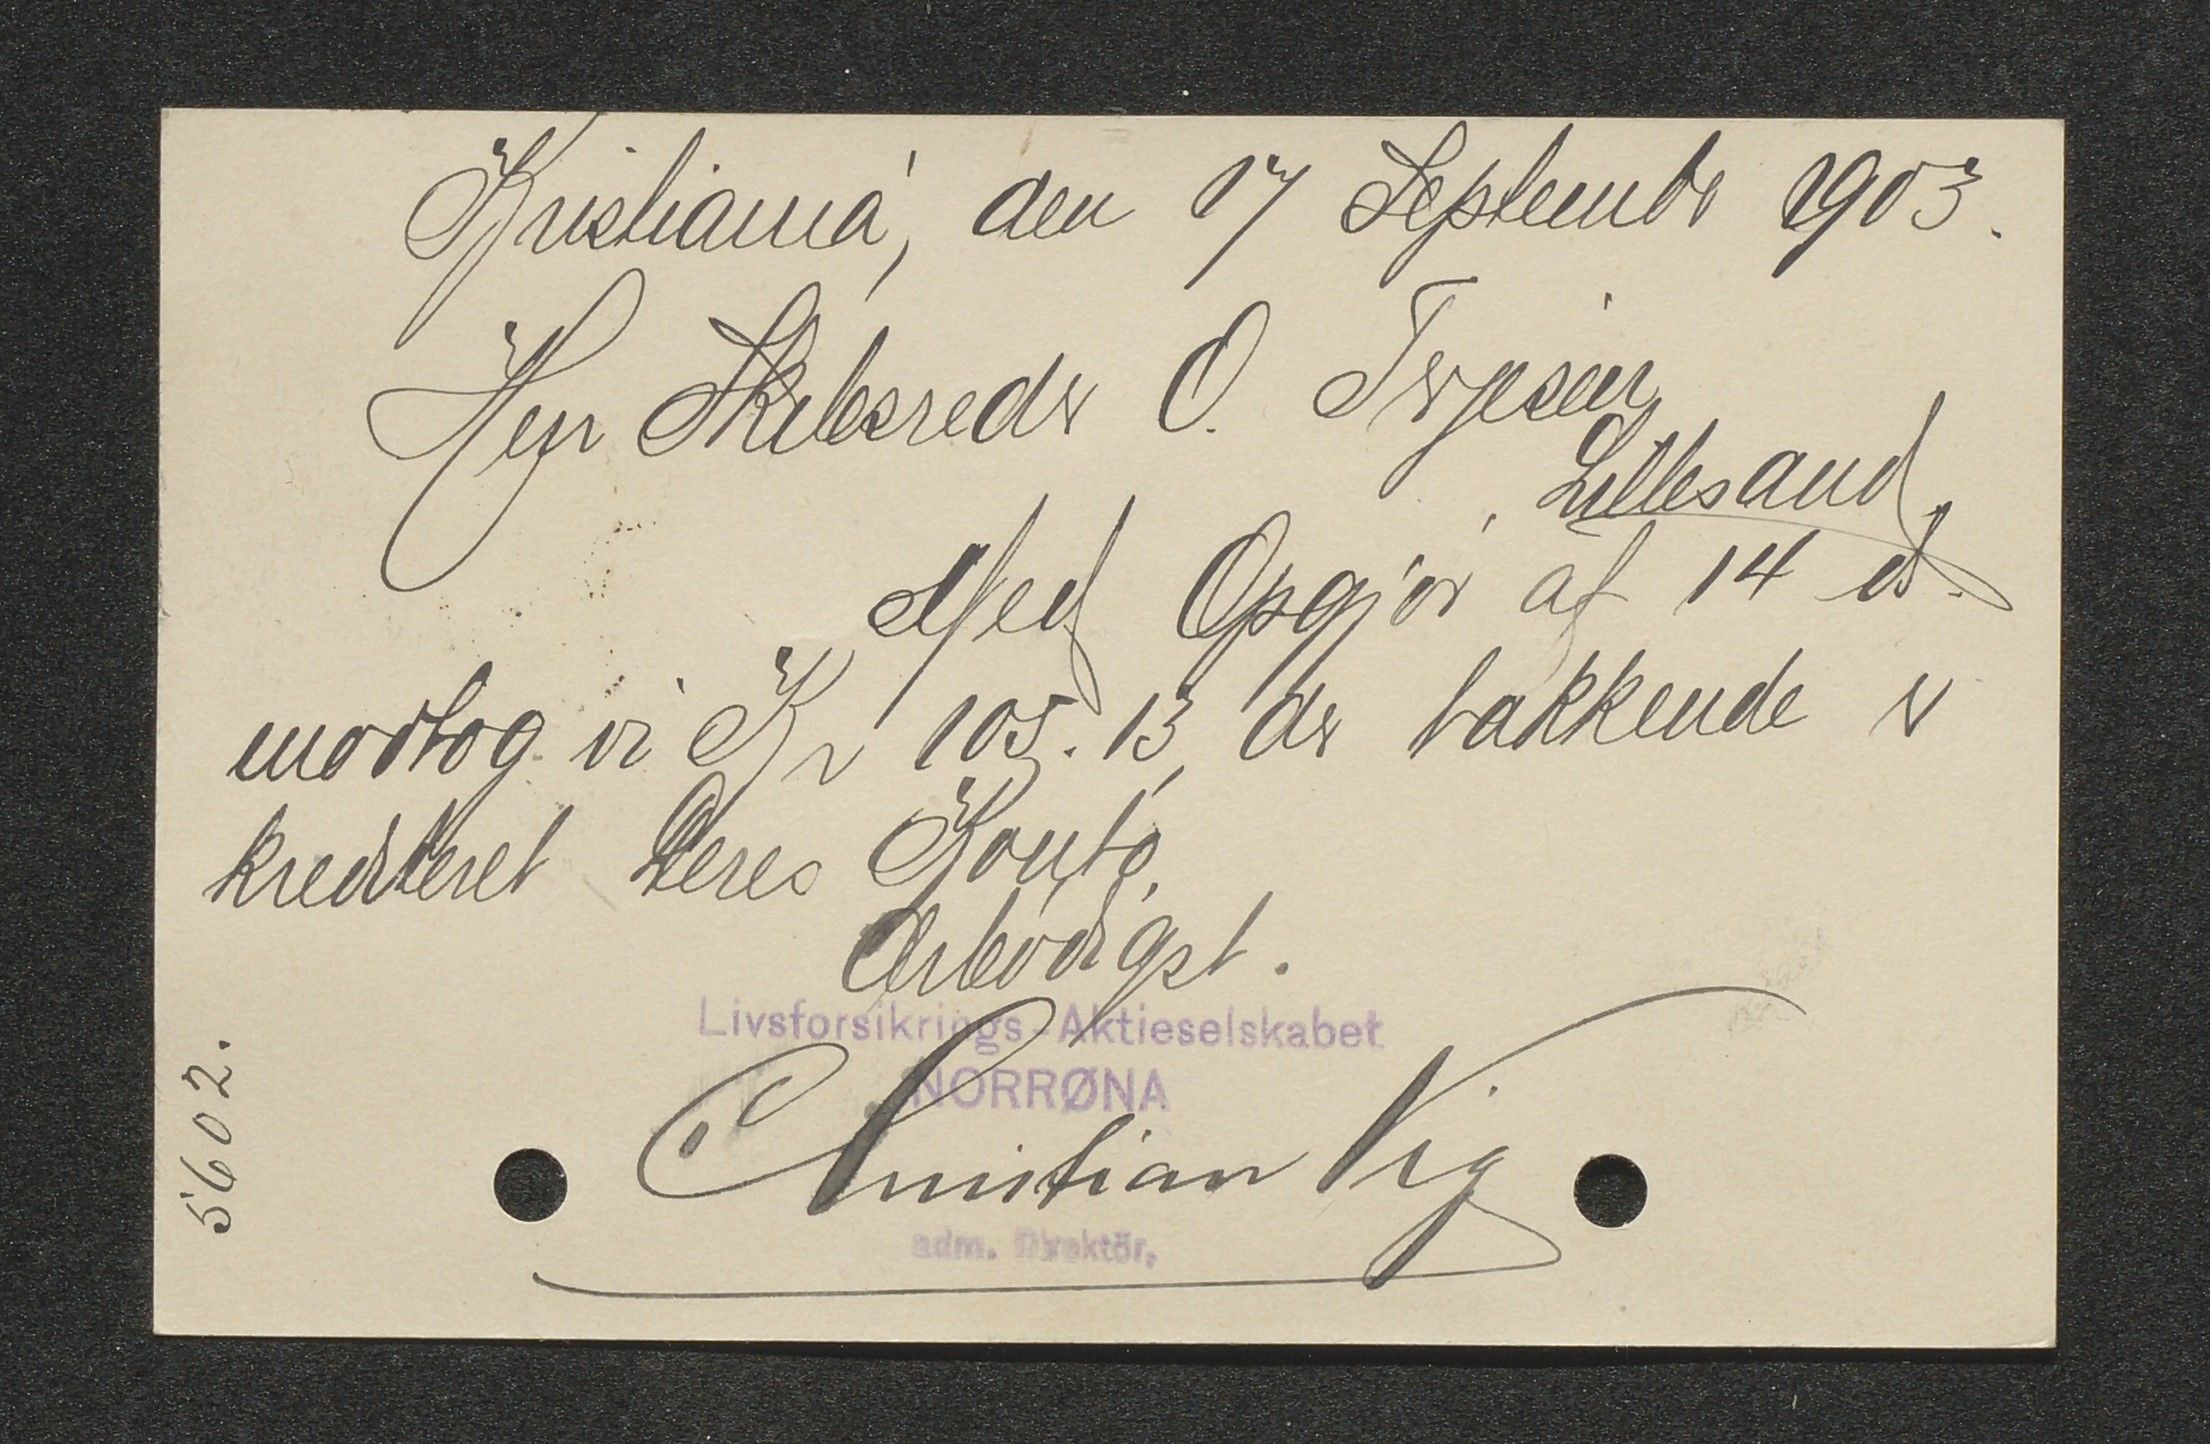 Kristiania, den 17 September 1903.
Herr Skibsreder O. Terjesen
Lillesand.
Med Opgjör af 14 ds.
modtog vi Kr 105.13, der takkende er
krediteret Deres Konto.
Ærbödigst.
Livsforsikrings-Aktieselskabet
NORRØNA
Christian Vig
adm. Direktör.
5602.